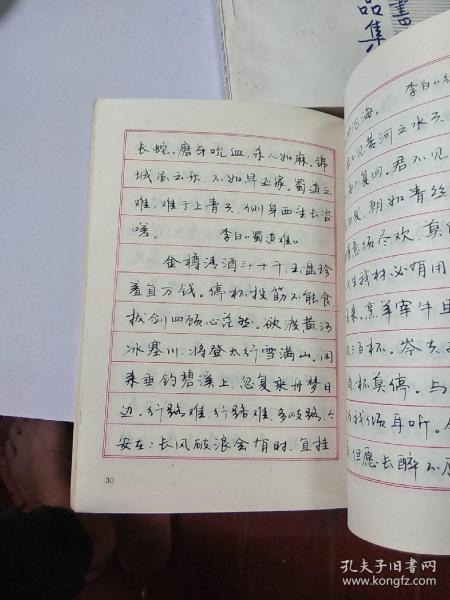 書
品集
长蛇。磨牙吮血，杀人如麻。锦
城虽云乐，不如早还家。蜀道之
难，难于上青天，侧身西望长咨
嗟。 李白《蜀道难》
金樽清酒斗十千，玉盘珍
羞直万钱。停杯投箸不能食，
拔剑四顾心茫然。欲渡黄河
冰塞川，将登太行雪满山。闲
来垂钓碧溪上，忽复乘舟梦日
边。行路难，行路难，多歧路，今
安在：长风破浪会有时，直挂
30
沧海。 李白《行
不见黄河之水天
不复回。君不见
发，朝如青丝
意须尽欢，莫
生我材必有用
来。烹羊宰牛且
三百杯。岑夫
杯莫停。与
为我倾耳听。
但愿长醉不愿
孔夫子旧书网
www.kongfz.com